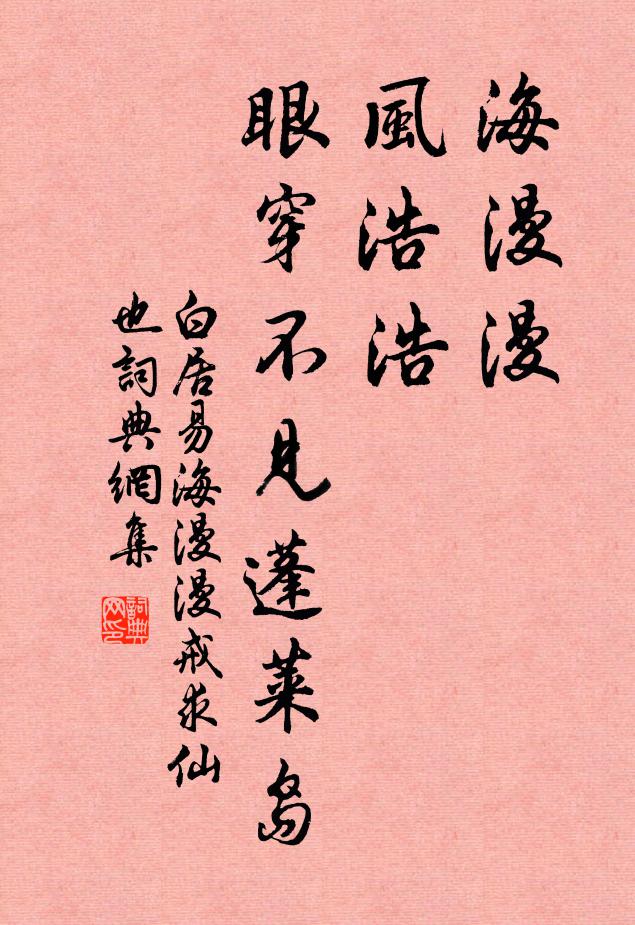 海漫漫
風浩浩
眼穿不見蓬萊島
白居易海漫漫戒求仙
也詞典網集
詞典网印